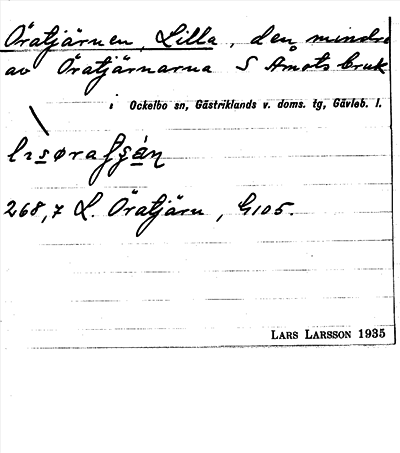 Öratjärnen, Lilla, den mindre
av Öratjärnarna S Åmots bruk
i Ockelbo sn, Gästriklands v. doms. tg, Gävleb. l.
268,7 L. Öratjärn, G105.
LARS LARSSON 1935